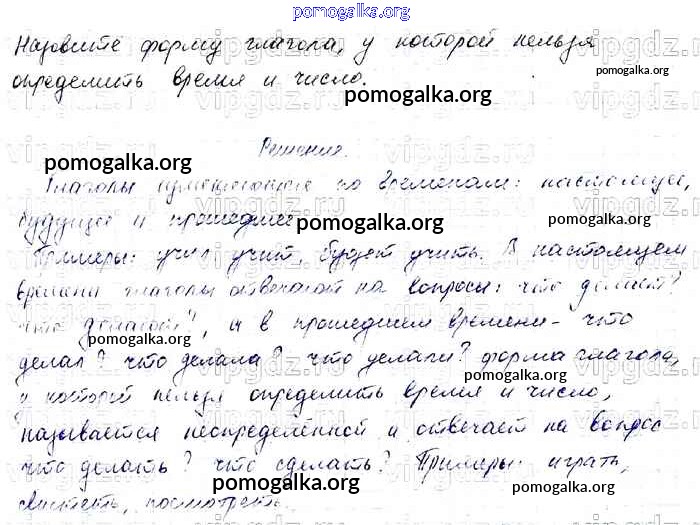 pomogalka.org
Назовите форму глагола, у которой нельзя
определить время и число.
pomogalka.org
pomogalka.org
Решения.
pomogalka.org
Глаголы изменяются по временам: настоящее,
будущее и прошедшее
pomogalka.org
pomogalka.org
Примеры: учил учит, будет учить. В настоящем
времени глаголы отвечают на вопросы: что делает?
что делают?, а в прошедшем времени - что
pomogalka.org
делал? что делала? что делали? форма глагола,
pomogalka.org
у которой нельзя определить время и число,
называется неопределённой и отвечает на вопрос
что делать? что сделать? Примеры: играть,
pomogalka.org
свистеть, посмотреть
pomogalka.org